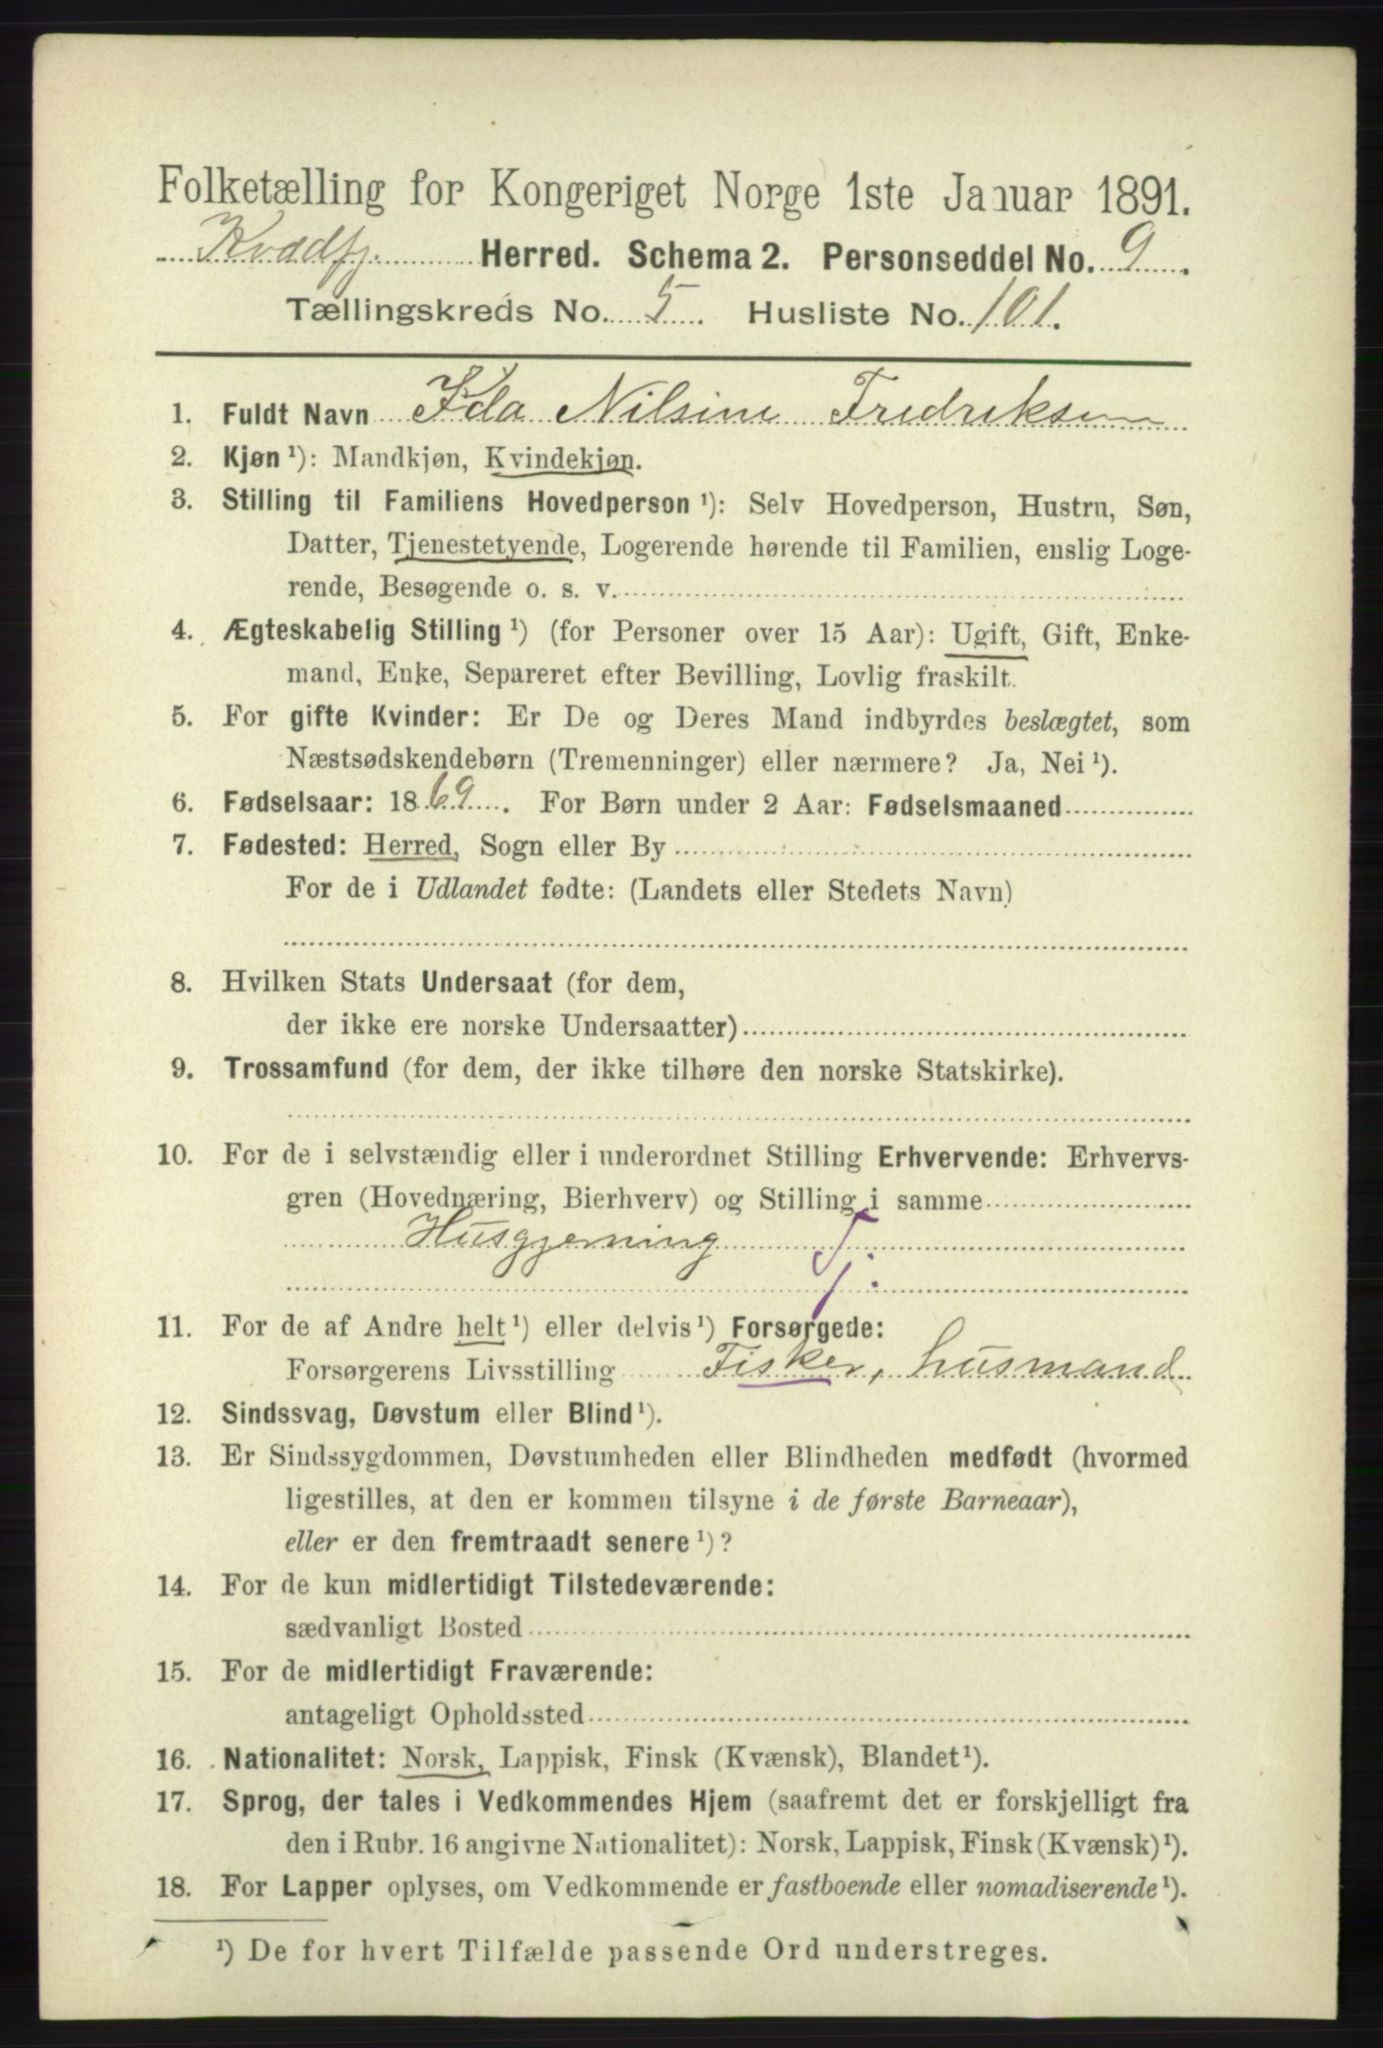 Folketælling for Kongeriget Norge 1ste Januar 1891.
Kvædfj. Herred. Schema 2. Personseddel No. 9.
Tællingskreds No. 5. Husliste No. 101.
1. Fuldt Navn Ida Nilsine Fredriksen
2. Kjøn ¹): Mandkjøn, Kvindekjøn.
3. Stilling til Familiens Hovedperson ¹): Selv Hovedperson, Hustru, Søn,
Datter, Tjenestetyende, Logerende hørende til Familien, enslig Loge-
rende, Besøgende o. s. v.
4. Ægteskabelig Stilling ¹) (for Personer over 15 Aar): Ugift, Gift, Enke-
mand, Enke, Separeret efter Bevilling, Lovlig fraskilt.
5. For gifte Kvinder: Er De og Deres Mand indbyrdes beslægtet, som
Næstsødskendebørn (Tremenninger) eller nærmere? Ja, Nei ¹).
6. Fødselsaar: 1869. For Børn under 2 Aar: Fødselsmaaned
7. Fødested: Herred, Sogn eller By
For de i Udlandet fødte: (Landets eller Stedets Navn)
8. Hvilken Stats Undersaat (for dem,
der ikke ere norske Undersaatter)
9. Trossamfund (for dem, der ikke tilhøre den norske Statskirke).
10. For de i selvstændig eller i underordnet Stilling Erhvervende: Erhvervs-
gren (Hovednæring, Bierhverv) og Stilling i samme
Husgjerning T.
11. For de af Andre helt ¹) eller delvis ¹) Forsørgede:
Forsørgerens Livsstilling Fisker, husmand
12. Sindssvag, Døvstum eller Blind ¹).
13. Er Sindssygdommen, Døvstumheden eller Blindheden medfødt (hvormed
ligestilles, at den er kommen tilsyne i de første Barneaar),
eller er den fremtraadt senere ¹)?
14. For de kun midlertidigt Tilstedeværende:
sædvanligt Bosted
15. For de midlertidigt Fraværende:
antageligt Opholdssted
16. Nationalitet: Norsk, Lappisk, Finsk (Kvænsk), Blandet ¹).
17. Sprog, der tales i Vedkommendes Hjem (saafremt det er forskjelligt fra
den i Rubr. 16 angivne Nationalitet): Norsk, Lappisk, Finsk (Kvænsk) ¹).
18. For Lapper oplyses, om Vedkommende er fastboende eller nomadiserende ¹).
¹) De for hvert Tilfælde passende Ord understreges.